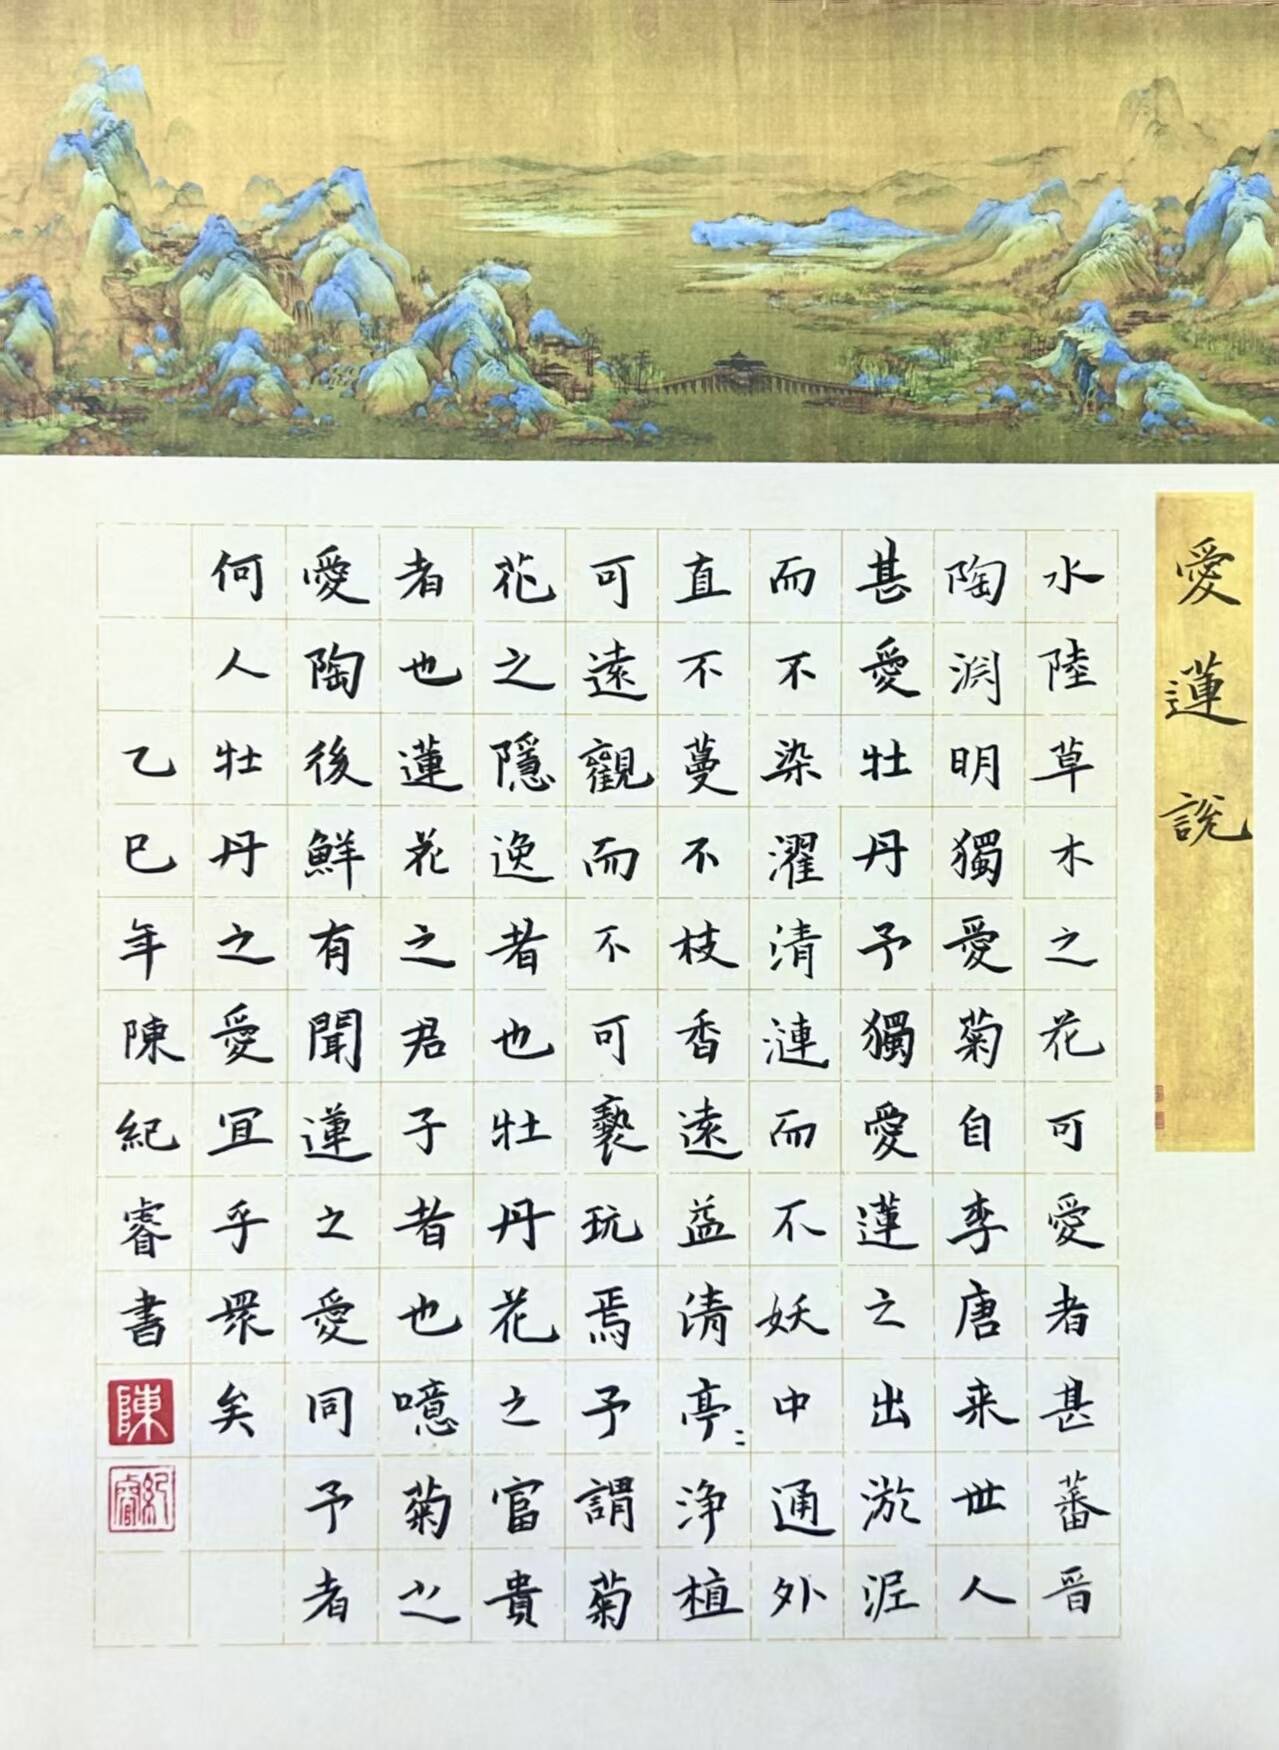 愛蓮說
水陸草木之花可愛者甚蕃晉
陶淵明獨愛菊自李唐来世人
甚愛牡丹予獨愛蓮之出淤泥
而不染濯清漣而不妖中通外
直不蔓不枝香遠益清亭〻浄植
可遠觀而不可褻玩焉予謂菊
花之隱逸者也牡丹花之富貴
者也蓮花之君子者也噫菊之
愛陶後鮮有聞蓮之愛同予者
何人牡丹之愛宜乎眾矣
乙巳年陳紀睿書
陳
紀睿